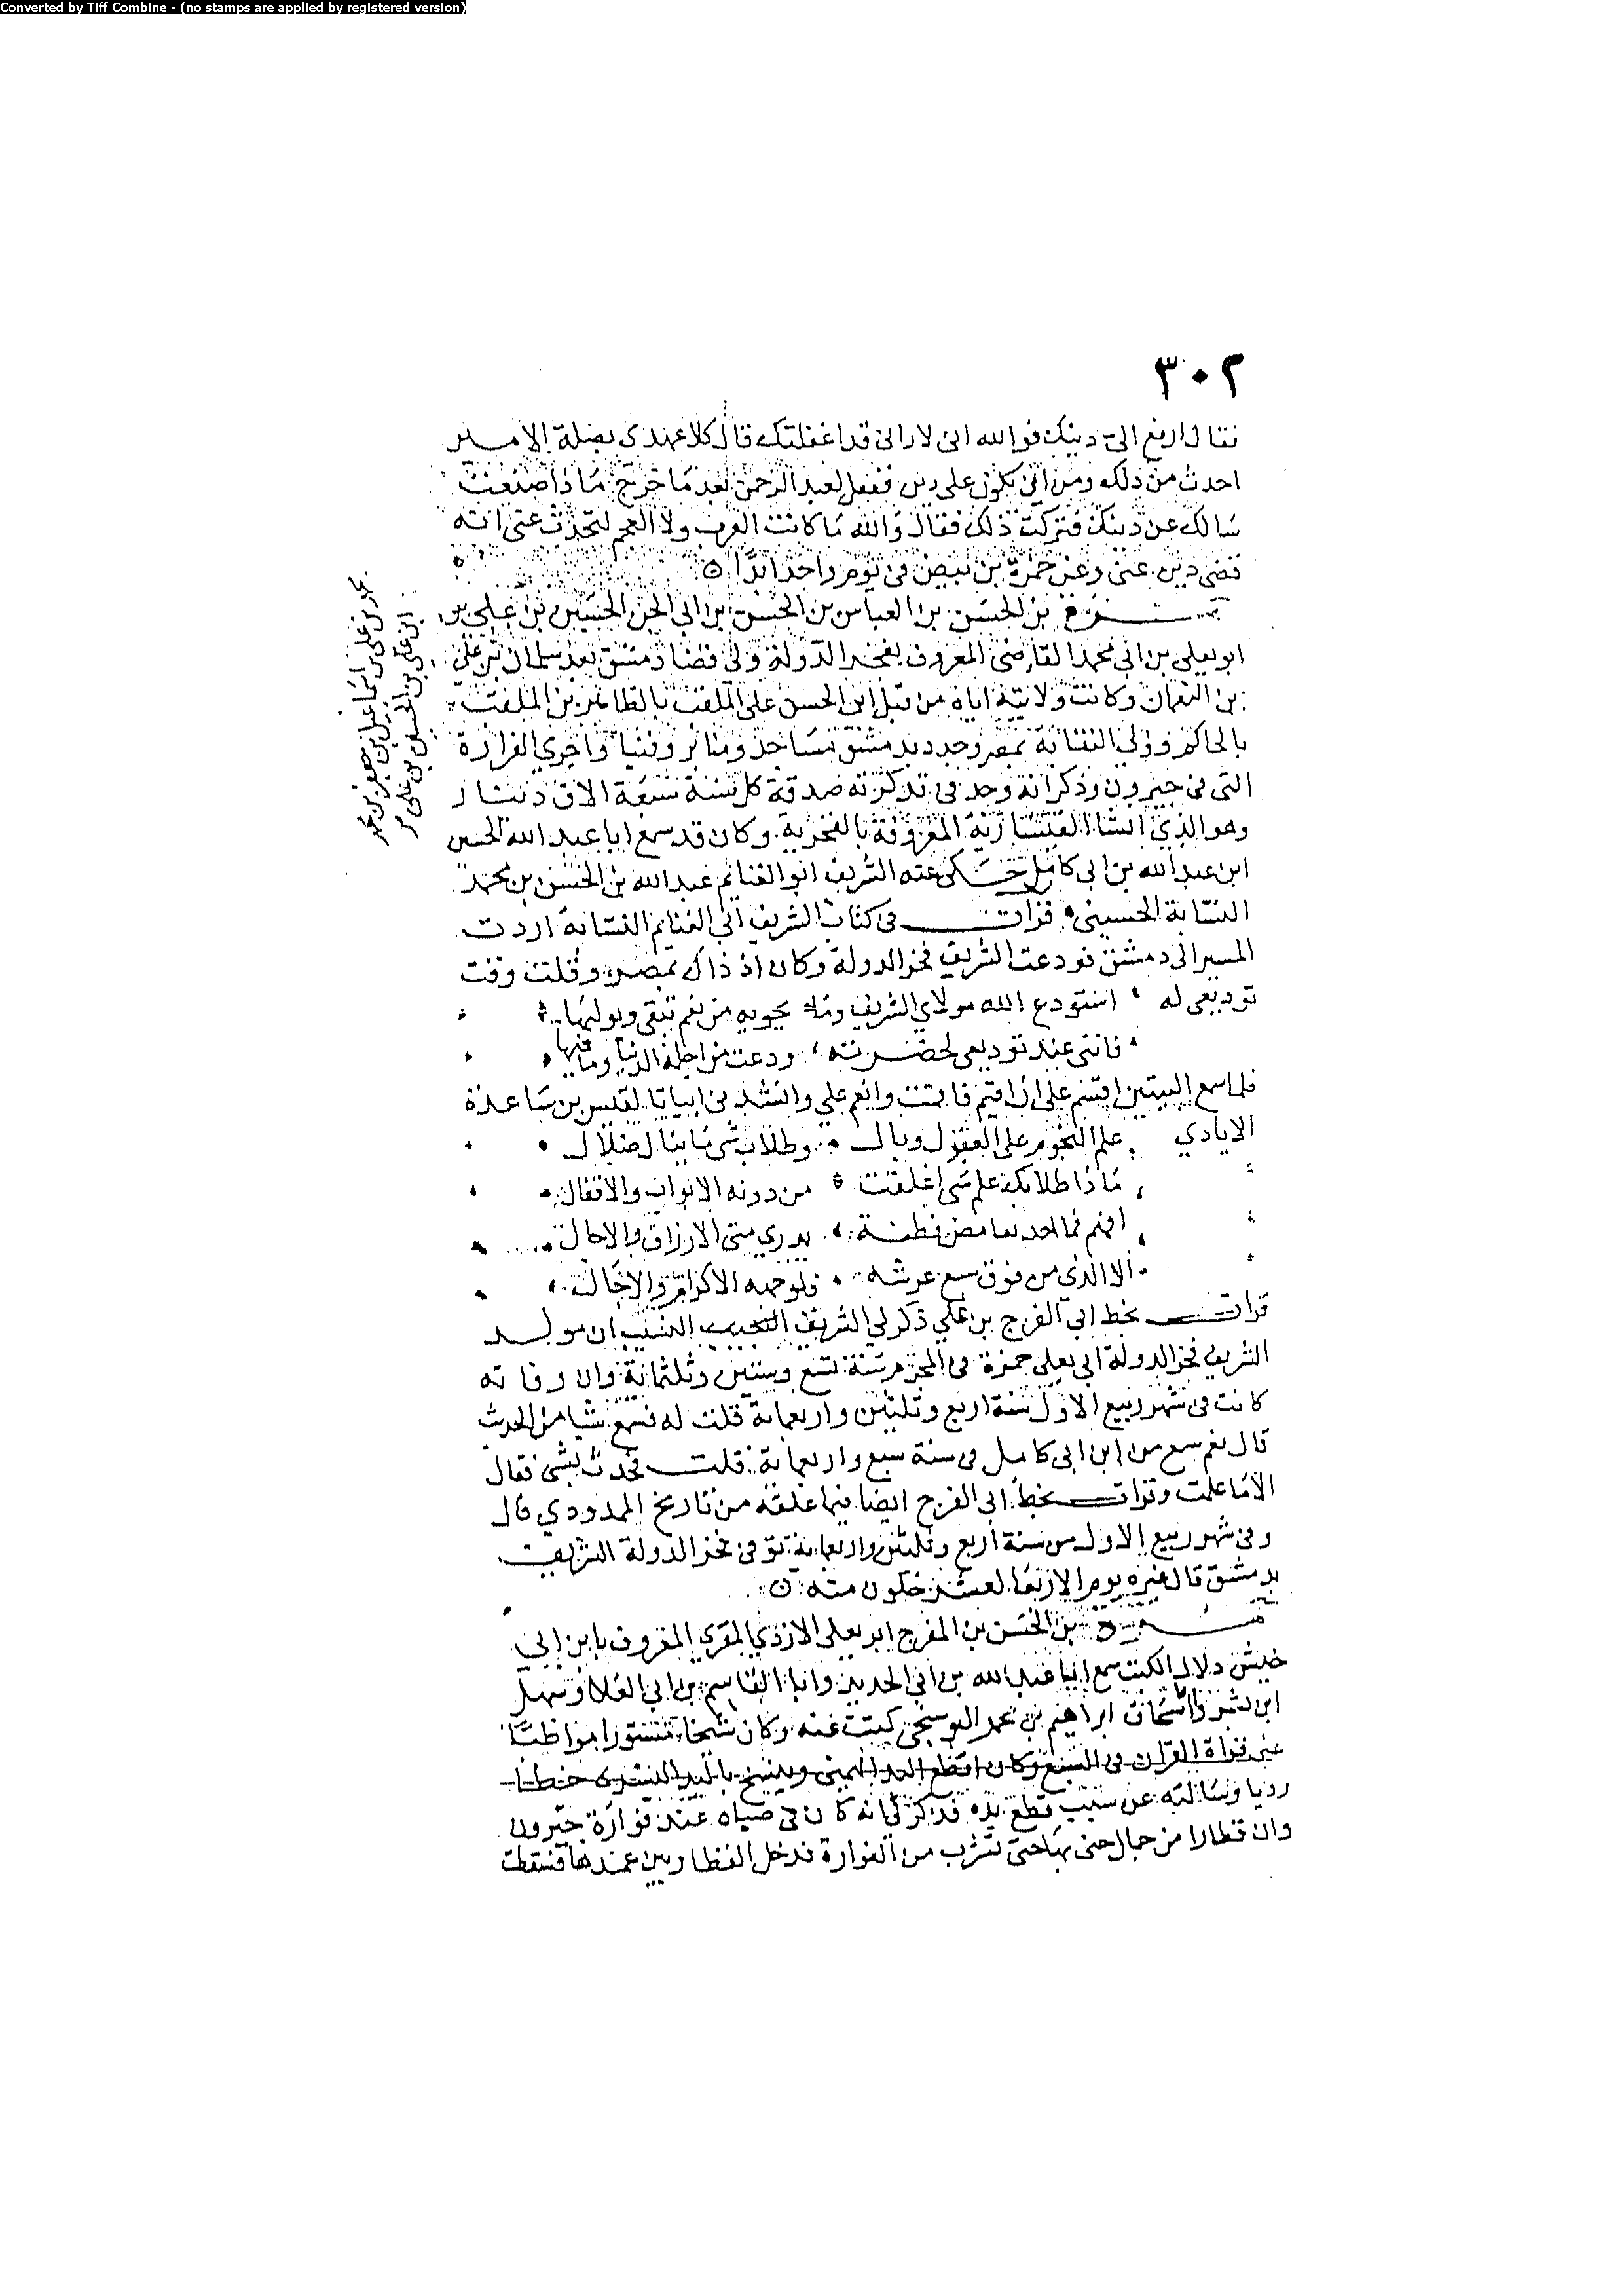 Converted by Tiff Combine - (no stamps are applied by registered version)
٣٠٢
فقال ارفع الي دينك فوالله اني لاراني قد اغفلتك قال كلا عهدي بصلة الامير
احدث من ذلك ومن اني يكون علي دين فقيل لعبد الرحمن بعد ما خرج ما ذا صنعت
سالك عن دينك فتركت ذلك فقال والله ما كانت العرب ولا العجم لتحدث عني انه
قضى ديني عني وعن حمزة بن بيض في يوم واحد ابدا
حمزة بن الحسن بن العباس بن الحسن بن ابي الجن الحسين بن علي بن
محمد بن علي بن اسماعيل بن جعفر بن محمد
ابن علي بن الحسين بن علي
ابو يعلى بن ابي محمد القاضي المعروف بفخر الدولة ولي قضا دمشق بعد سلمان بن علي
بن النعمان وكانت ولايته اياه من قبل ابي الحسن علي الملقب بالظاهر بن الملقب
بالحاكم وولي النقابة بمصر وجدد بدمشق مساجد ومنابر وقنيا واجرى الفوارة
التي في جيرون وذكر انه وجد في تذكرته صدقة كل سنة سبعة الاف دينار
وهو الذي انشا القيسارية المعروفة بالفخرية وكان قد سمع ابا عبد الله الحسين
ابن عبد الله بن ابي كامل حكى عنه الشريف ابو الغنايم عبد الله بن الحسن بن محمد
النسابة الحسيني قرات في كتاب الشريف ابي الغنايم النسابة اردت
المسير الى دمشق فودعت الشريف فخر الدولة وكان اذ ذاك بمصر وقلت وقت
توديعي له استودع الله مولاي الشريف وما يحويه من نعم تبقى ويوليها
فانني عند توديعي لحضرته ودعت من اجله الدنيا وما فيها
فلما سمع البيتين اقسم علي ان اقيم فاقمت وانعم علي وانشدني ابياتا لقيس بن ساعدة
الايادي علم النجوم على العقول وبال وطلاب شي ما ينال ضلال
ما ذا طلابك علم شي اغلقت من دونه الابواب والاقفال
افهم فما احد بغامض فطنة يدري متى الارزاق والاجال
الا الذي من فوق سبع عرشه فلوجهه الاكرام والاجلال
قرات بخط ابي الفرج بن علي ذكر لي الشريف النجيب النسيب ان مولد
الشريف فخر الدولة ابي يعلى حمزة في المحرم سنة تسع وستين وثلثماية وان وفاته
كانت في شهر ربيع الاول سنة اربع وثلثين واربعماية قلت له فسمع شيا من الحديث
قال نعم سمع من ابن ابي كامل في سنة سبع واربعماية قلت فحدث بشي فقال
لا ما علمت وقرات بخط ابي الفرج ايضا فيما علقه من تاريخ الممدودي قال
وفي شهر ربيع الاول من سنة اربع وثلثين واربعماية توفي فخر الدولة الشريف
بدمشق قال غيره يوم الاربعا لعشر خلون منه
حمزة بن الحسن بن المفرج ابو يعلى الازدي المقري المعروف بابن ابي
خيش دلال الكتب سمع ابا عبد الله بن ابي الحديد وابا القاسم بن ابي العلا وسهل
ابن بشر وابا اسحاق ابراهيم بن محمد البوسنجي كتبت عنه وكان شيخا مستورا مواظبا
على قراة القران في السبع وكان اقطع اليد اليمنى وينسخ باليد اليسرى خطا
رديا وسالته عن سبب قطع يده فذكر لي انه كان في صباه عند فوارة جيرون
وان قطارا من جمال جي بها حتى تشرب من الفوارة فدخل القطار بين عمدها فسقطت